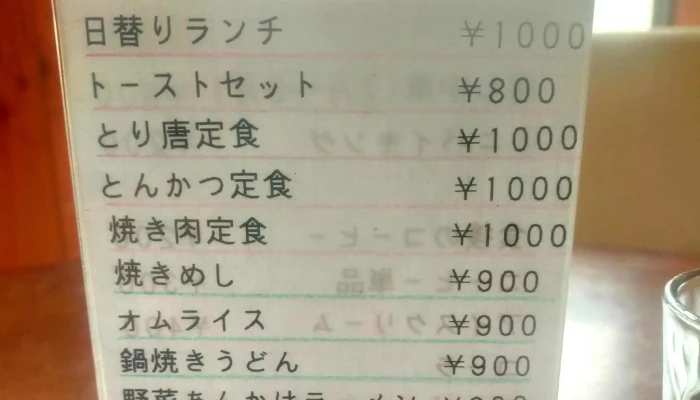 日替りランチ ¥1000
トーストセット ¥800
とり唐定食 ¥1000
とんかつ定食 ¥1000
焼き肉定食 ¥1000
焼きめし ¥900
オムライス ¥900
鍋焼きうどん ¥900
野菜あんかけラーメン